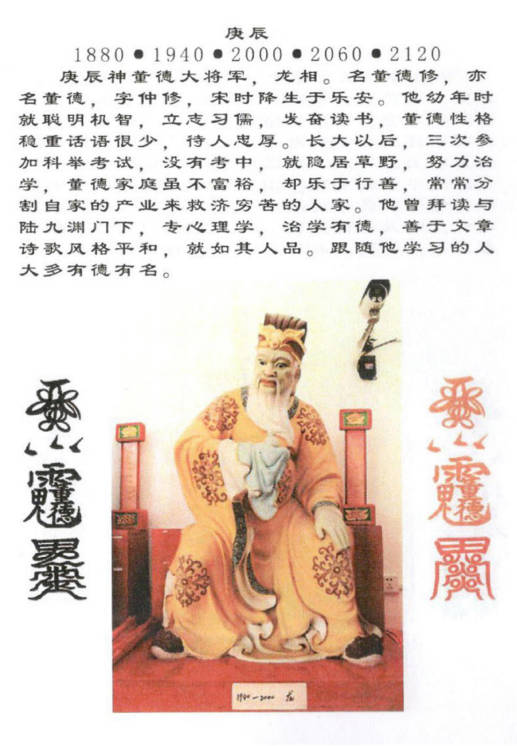 庚辰
1880●1940●2000●2060●2120
庚辰神董德大将军，龙相。名董德修，亦
名董德，字仲修，宋时降生于乐安。他幼年时
就聪明机智，立志习儒，发奋读书，董德性格
稳重话语很少，待人忠厚。长大以后，三次参
加科举考试，没有考中，就隐居草野，努力治
学，董德家庭虽不富裕，却乐于行善，常常分
割自家的产业来救济穷苦的人家。他曾拜读与
陆九渊门下，专心理学，治学有德，善于文章
诗歌风格平和，就如其人品。跟随他学习的人
大多有德有名。
1940—2000 龙